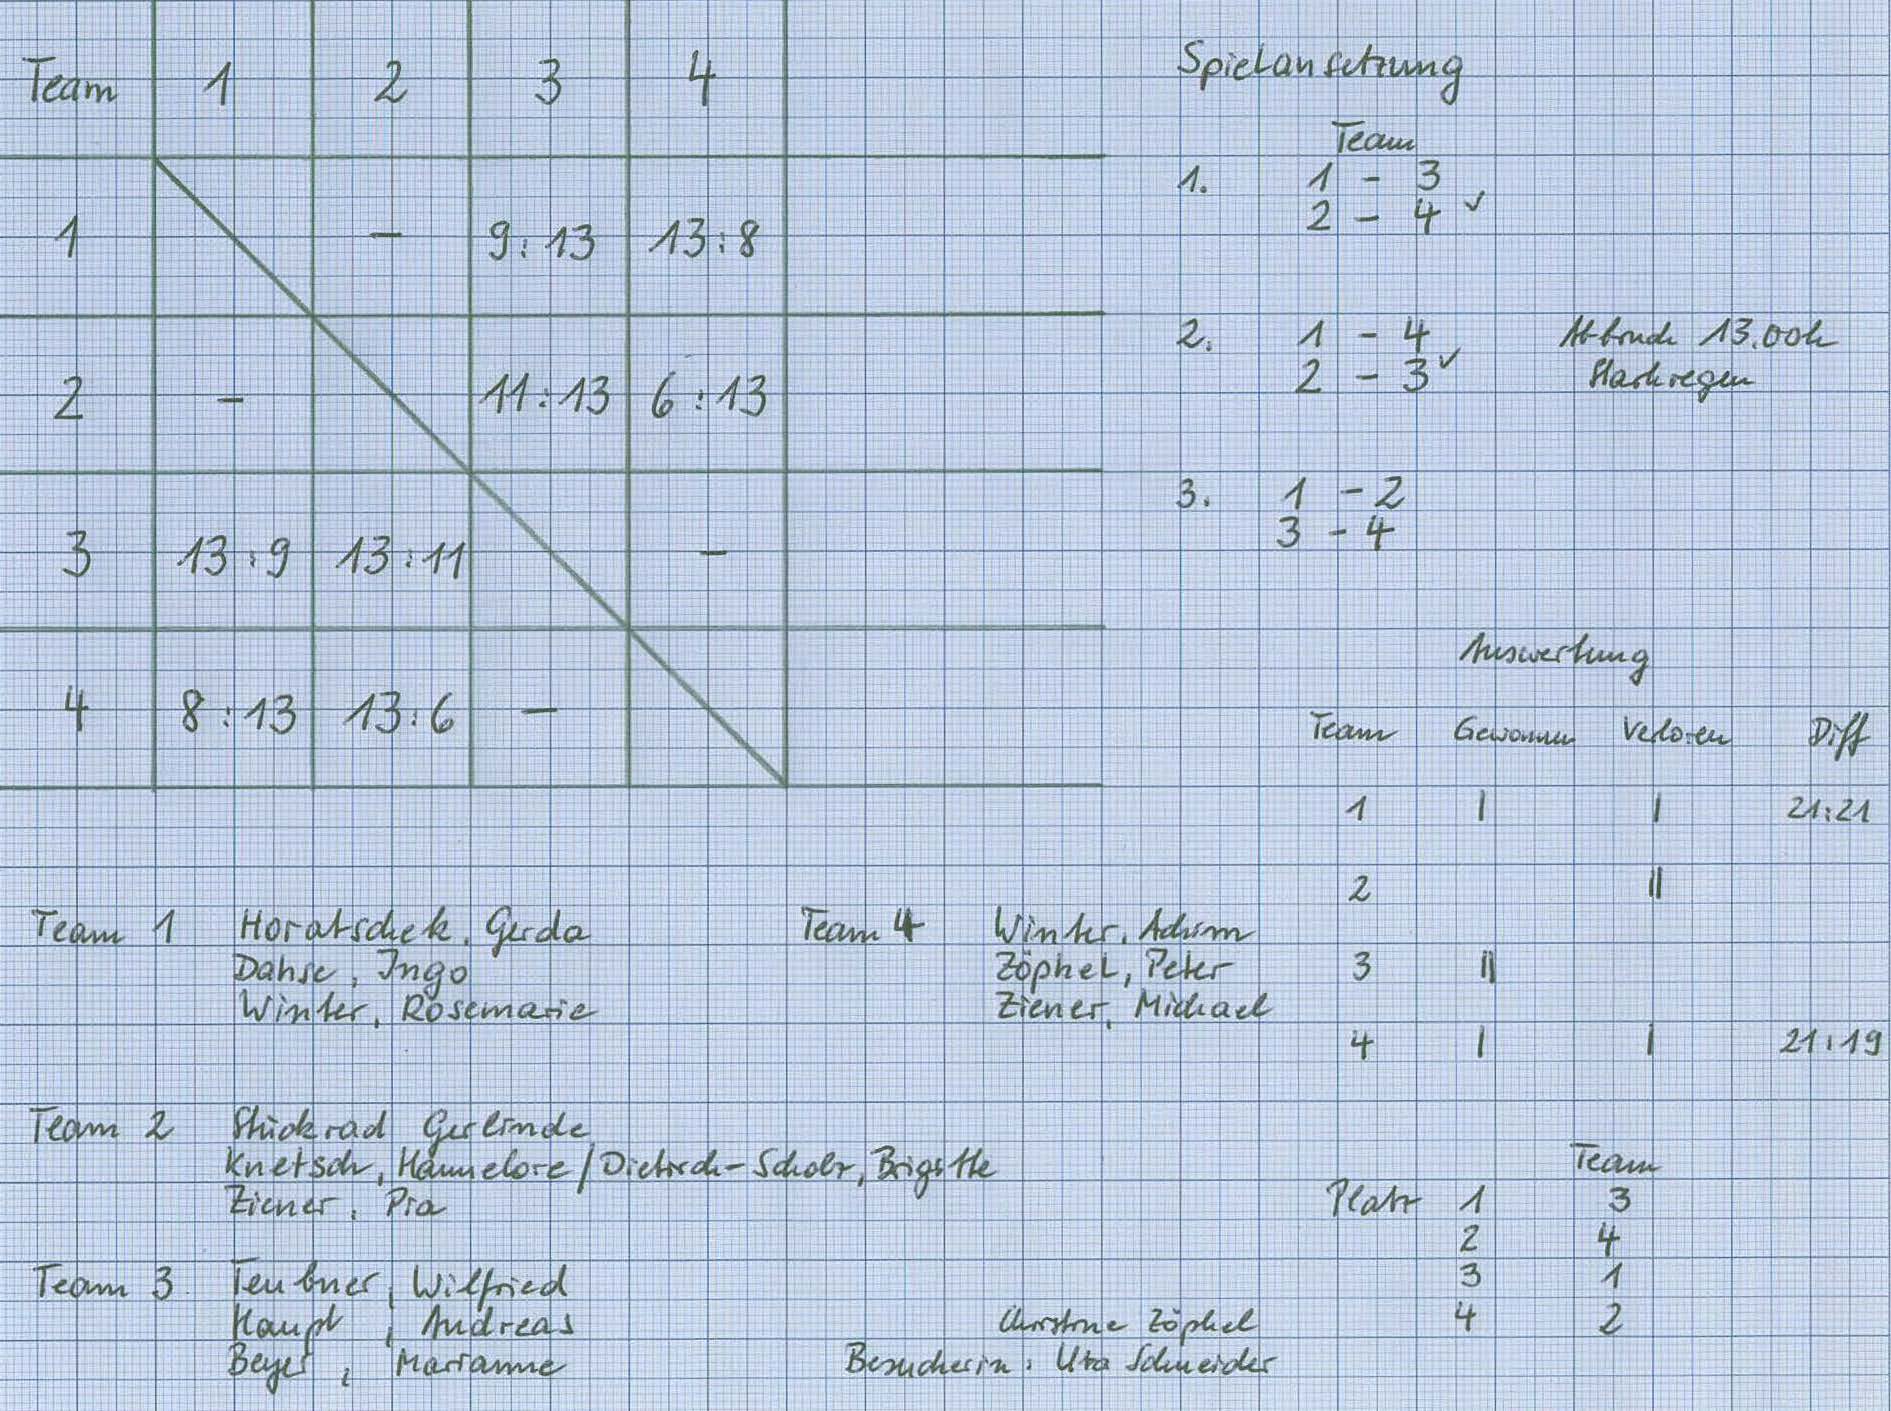 Team 1 2 3 4
1 - 9:13 13:8
2 - 11:13 6:13
3 13:9 13:11 -
4 8:13 13:6 -
Spielansetzung
Team
1. 1 - 3
2 - 4 ✓
2. 1 - 4 Abbruch 13.00h
2 - 3 ✓ Starkregen
3. 1 - 2
3 - 4
Auswertung
Team Gewonnen Verloren Diff
1 I I 21:21
2 II
3 II
4 I I 21:19
Team 1 Horatschek, Gerda
Dahse, Ingo
Winter, Rosemarie
Team 4 Winter, Achim
Zöphel, Peter
Ziener, Michael
Team 2 Stückrad Gerlinde
Knetsch, Hannelore / Dietrich-Scholz, Brigitte
Ziener, Pia
Team 3 Teubner, Wilfried
Haupt, Andreas
Beyer, Marianne
Christine Zöphel
Besucherin: Uta Schneider
Team
Platz 1 3
2 4
3 1
4 2